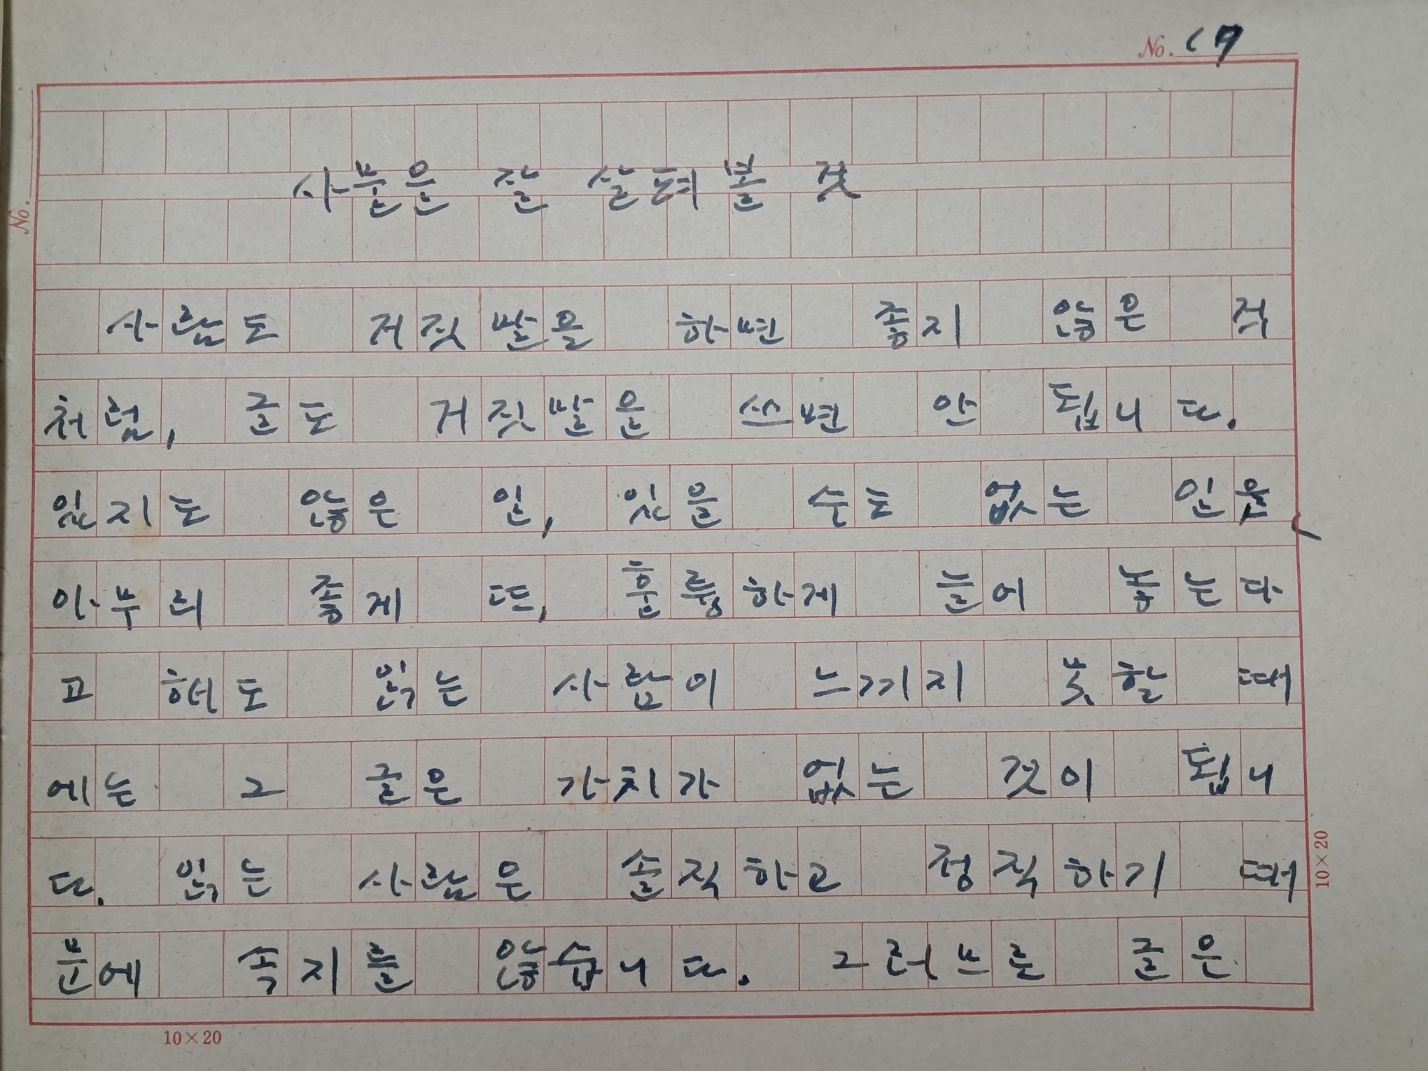 No. 17
No.
사물은 잘 살펴볼 것
사람도 거짓말을 하면 좋지 않은 것
처럼, 글도 거짓말을 쓰면 안 됩니다.
있지도 않은 일, 있을 수도 없는 일을
아무리 좋게 또, 훌륭하게 늘어 놓는다
고 해도 읽는 사람이 느끼지 못할 때
에는 그 글은 가치가 없는 것이 됩니
다. 읽는 사람은 솔직하고 정직하기 때
문에 속지를 않습니다. 그러므로 글은
10×20
10×20